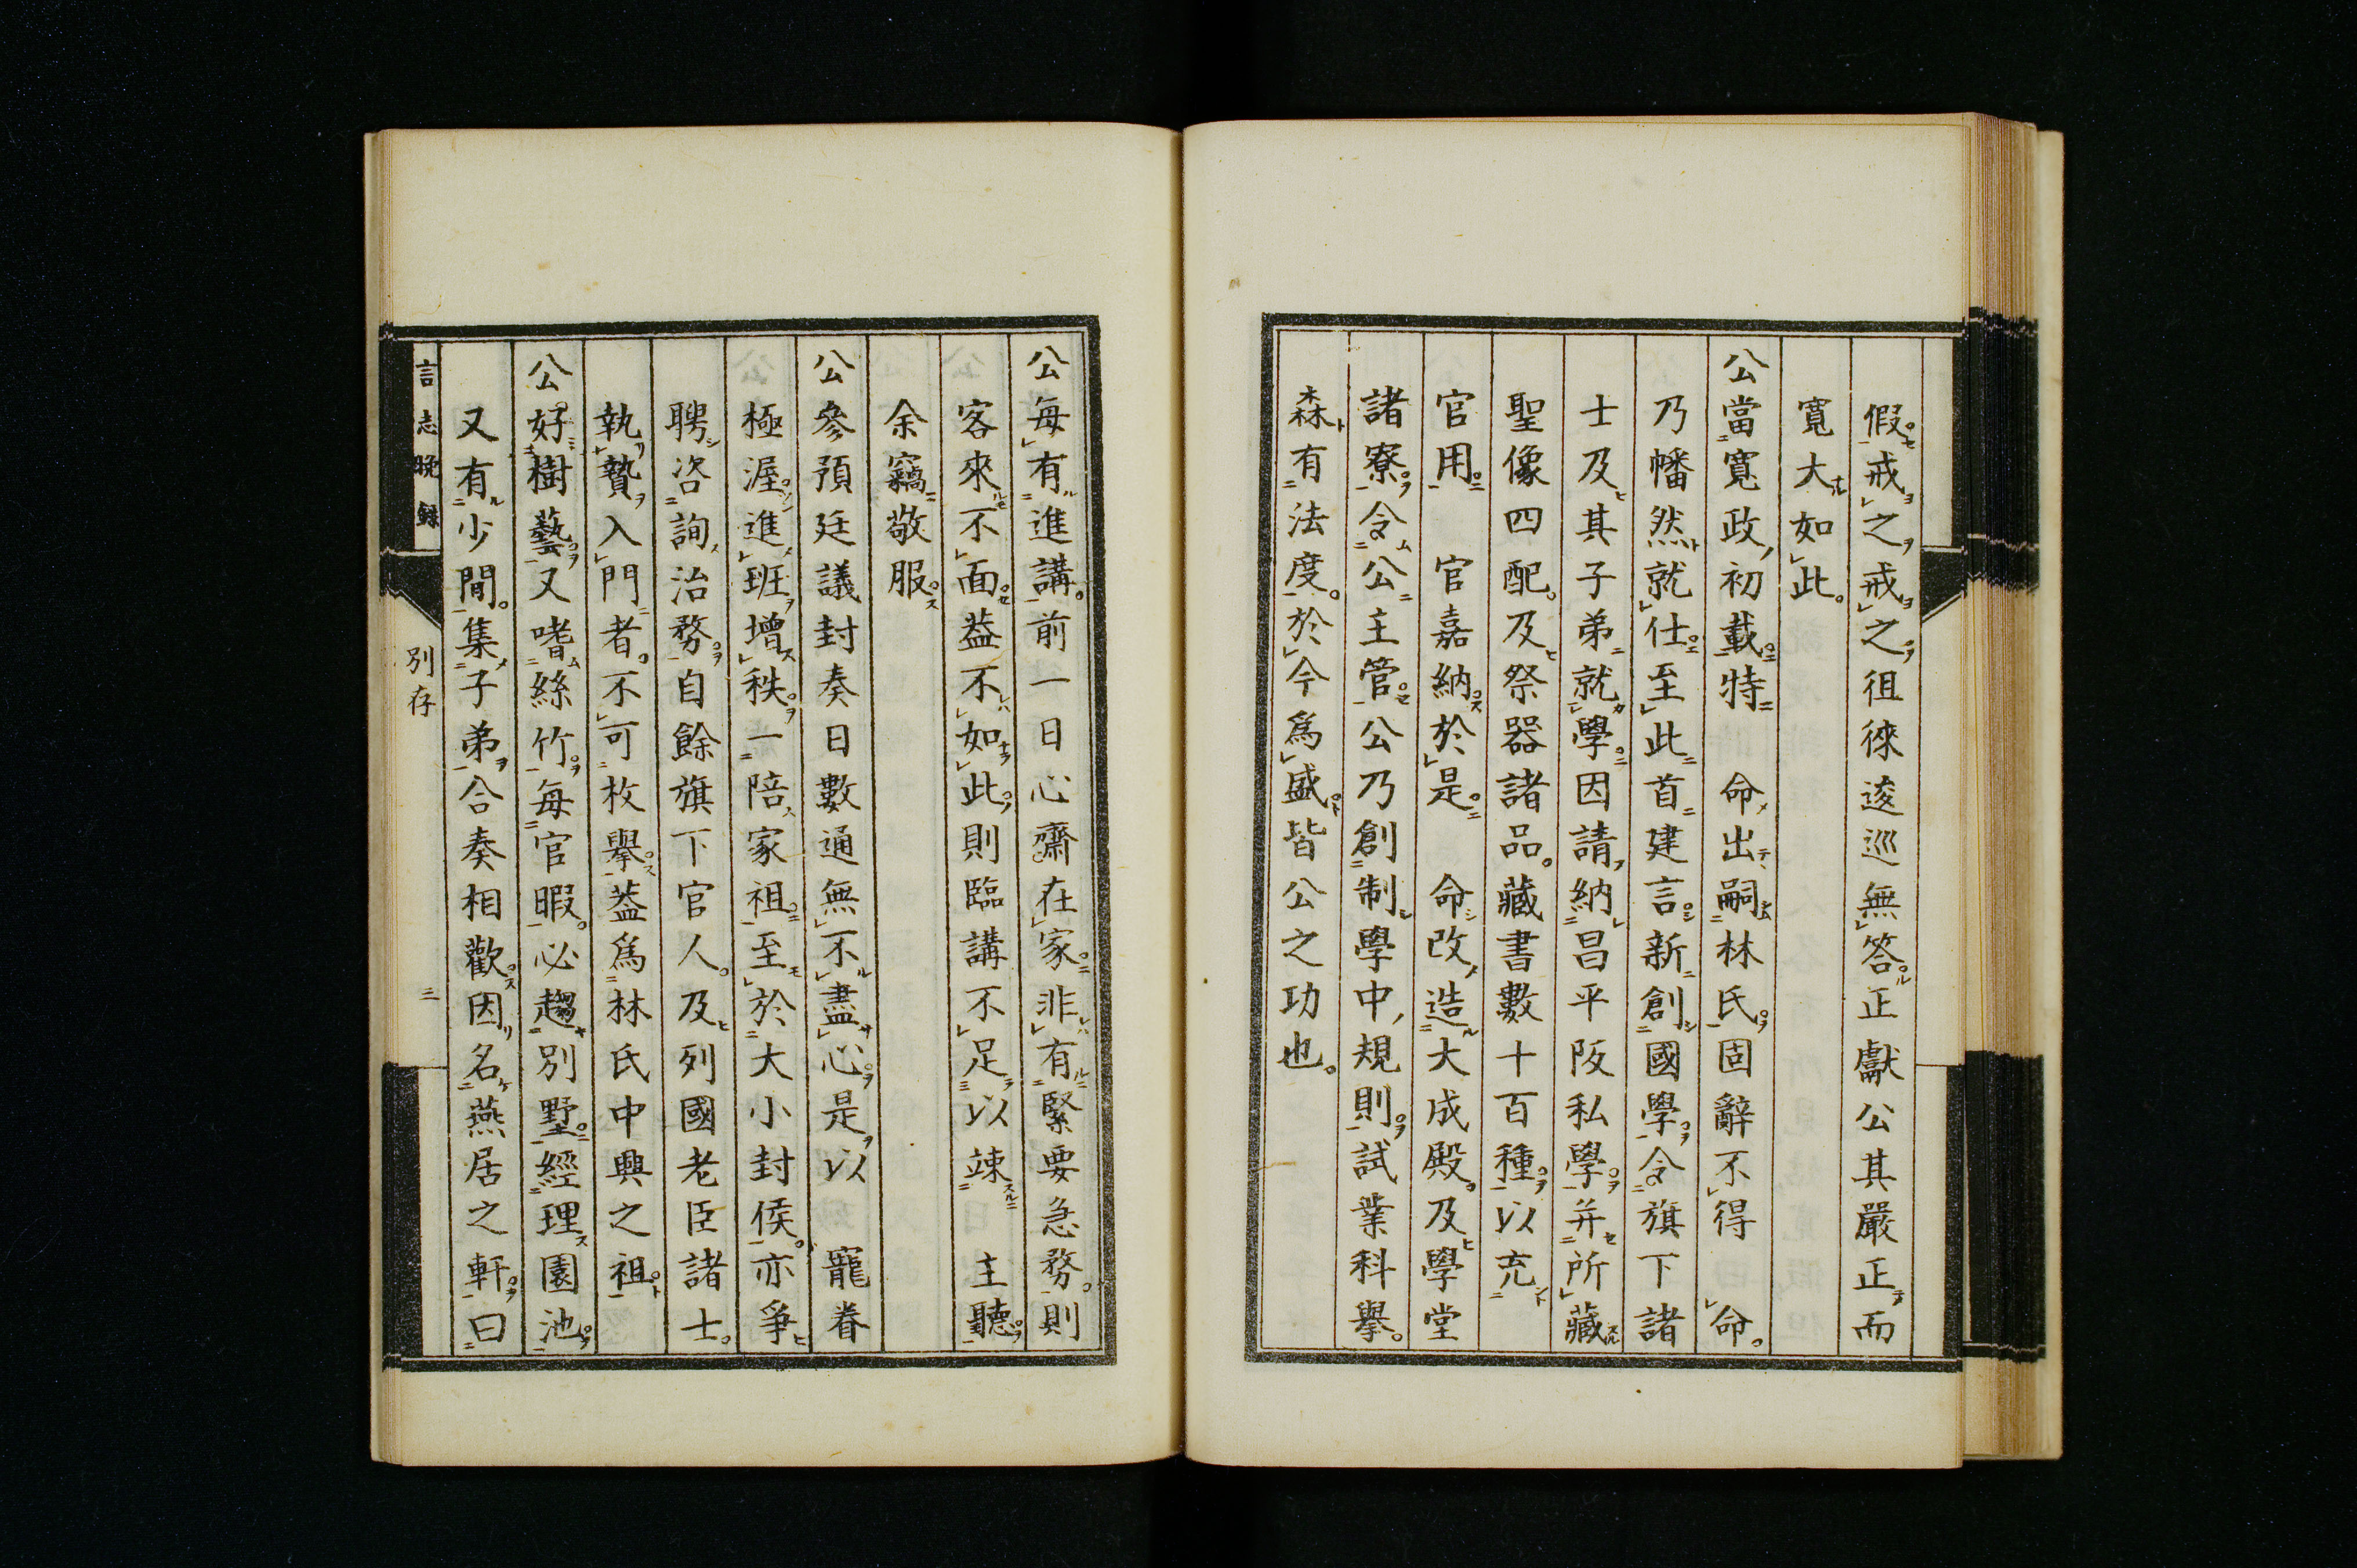 假戒之戒之徂徠逡巡無答正獻公其嚴正而
寬大如此
公當寬政初載特　命出嗣林氏固辭不得　命
乃幡然就仕至此首建言新創國學令旗下諸
士及其子弟就學因請納昌平阪私學并所藏
聖像四配及祭器諸品藏書數十百種以充
官用　官嘉納於是　命改造大成殿及學堂
諸寮令公主管公乃創制學中規則試業科舉
森有法度於今爲盛皆公之功也
公每有進講前一日心齋在家非有緊要急務則
客來不面蓋不如此則臨講不足以竦　主聽
余竊敬服
公參預廷議封奏日數通無不盡心是以　寵眷
極渥進班增秩一陪家祖至於大小封侯亦爭
聘咨詢治務自餘旗下官人及列國老臣諸士
執贄入門者不可枚擧蓋爲林氏中興之祖
公好樹藝又嗜絲竹每官暇必趨別墅經理園池
又有少間集子弟合奏相歡因名燕居之軒曰
言志晚錄　別存　三